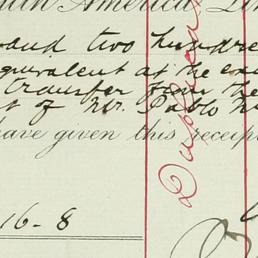 South America Lim
and two hundre
equivalent at the exc
transfer from the
t of Mr. Pablo
have given this receip
Duplica
16-8